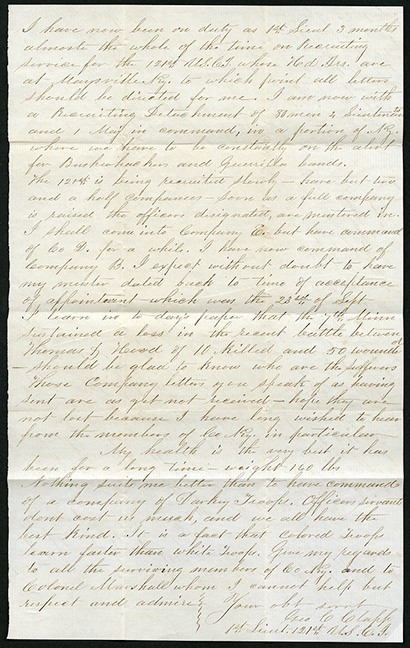 I have now been on duty as 1st Lieut 3 months
almost the whole of the time on Recruiting
service for the 121st U.S.C.T. whose Hd Qrs. are
at Maysville Ky. to which point all letters
should be directed for me. I am now with
a Recruiting Detachment of 38 men 2 Lieutenants
and 1 Maj in command, in a portion of Ky.
where we have to be constantly on the alert
for Bushwhackers and Guerrilla bands.
The 121st is being recruited slowly – have but two
and a half Companies – soon as a full company
is raised the officers designated, are mustered in.
I shall come into Company C. but have command
of Co D. for a while. I have now command of
Company B. I expect without doubt to have
my muster dated back to time of acceptance
of appointment which was the 23rd of Sept
I learn in to day's paper that the 7th Minn
sustained a loss in the recent battle between
Thomas & Hood of 10 Killed and 50 wounded
– should be glad to know who are the sufferers
Those Company letters you speak of as having
sent are as yet not received – hope they are
not lost because I have long wished to hear
from the members of Co in particular
My health is the very but it has
been for a long time – weight 140 lbs
Nothing suits me better than to have command
of a company of Darkey Troops. Officers servants
dont cost us much, and we all have the
best kind. It is a fact that colored troops
learn faster than white troops. Give my regards
to all the surviving members of Co and to
Colonel Marshall whom I cannot help but
respect and admire.
Your obt servt
Geo C Clapp
1st Lieut. 121st U.S.C.T.